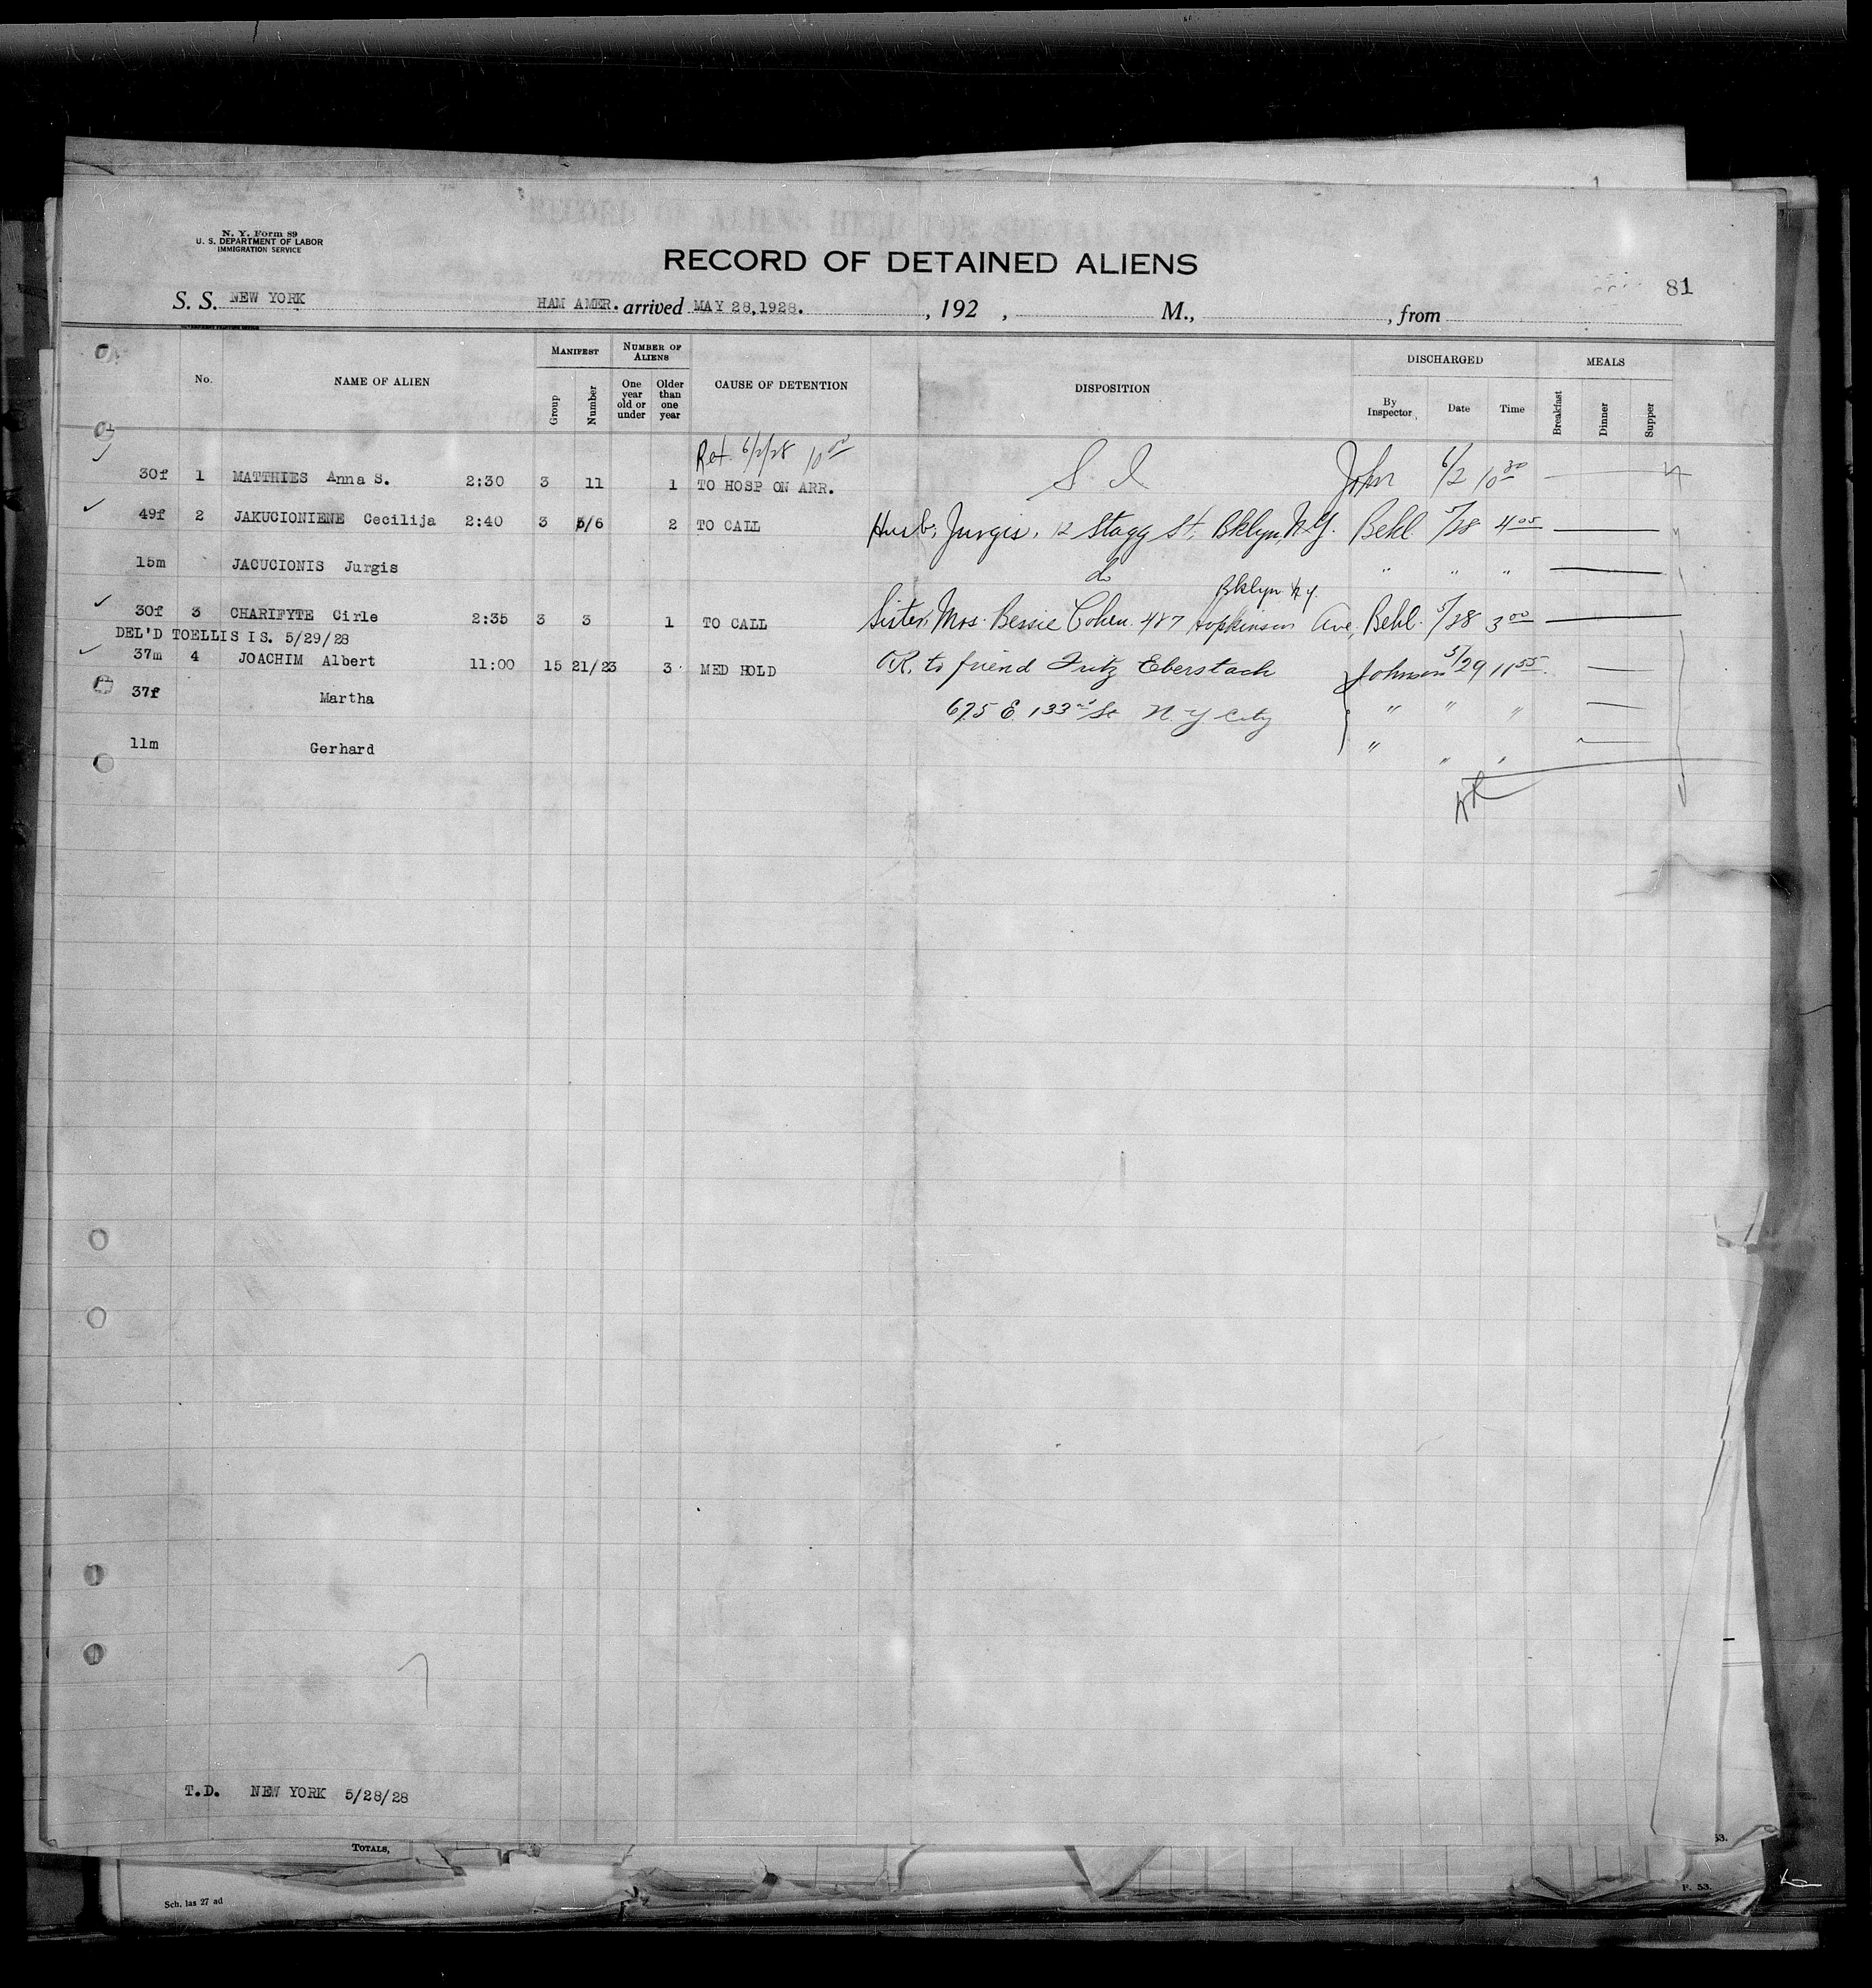 N. Y. Form 89
U. S. DEPARTMENT OF LABOR
IMMIGRATION SERVICE
RECORD OF DETAINED ALIENS
81
S. S. NEW YORK HAM AMER. arrived MAY 28,1928. , 192 , M., , from
No. NAME OF ALIEN MANIFEST Group Number NUMBER OF ALIENS One year old or under Older than one year CAUSE OF DETENTION DISPOSITION DISCHARGED By Inspector Date Time MEALS Breakfast Dinner Supper
Ret. 6/2/28 10 00
30f 1 MATTHIES Anna S. 2:30 3 11 1 TO HOSP ON ARR. S I John 6/2 10 30
49f 2 JAKUCIONIENE Cecilija 2:40 3 5/6 2 TO CALL Husb, Jurgis, 12 Stagg St, Bklyn, N.Y. Behl 5/28 4 05
15m JACUCIONIS Jurgis do " " "
Bklyn N.Y.
30f 3 CHARIFYTE Cirle 2:35 3 3 1 TO CALL Sister, Mrs. Bessie Cohen 487 Hopkinson Ave, Behl. 5/28 3 00
DEL'D TOELLIS IS. 5/29/28
37m 4 JOACHIM Albert 11:00 15 21/23 3 MED HOLD OR. to friend Fritz Eberstach Johnson 5/29 11 55
37f Martha 675 E. 133rd St N.Y City " " "
11m Gerhard " " "
T.D. NEW YORK 5/28/28
TOTALS,
53.
Sch. las 27 ad
F. 53.